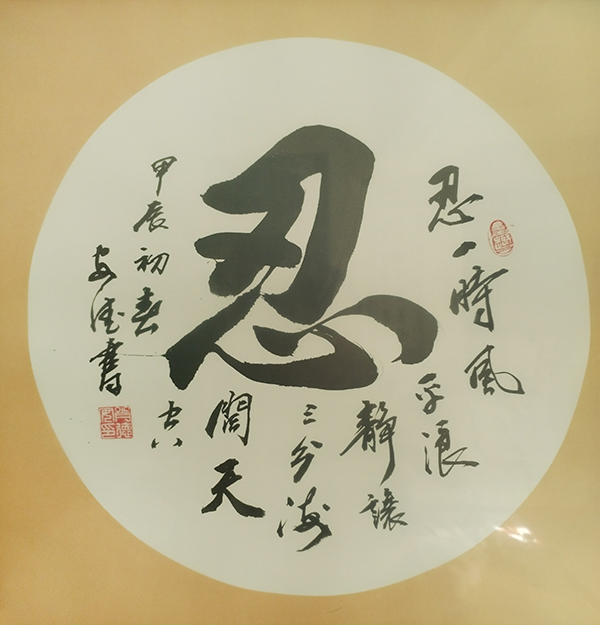 忍
忍一時風
平浪
靜讓
三分海
闊天
空
甲辰初春
安德書